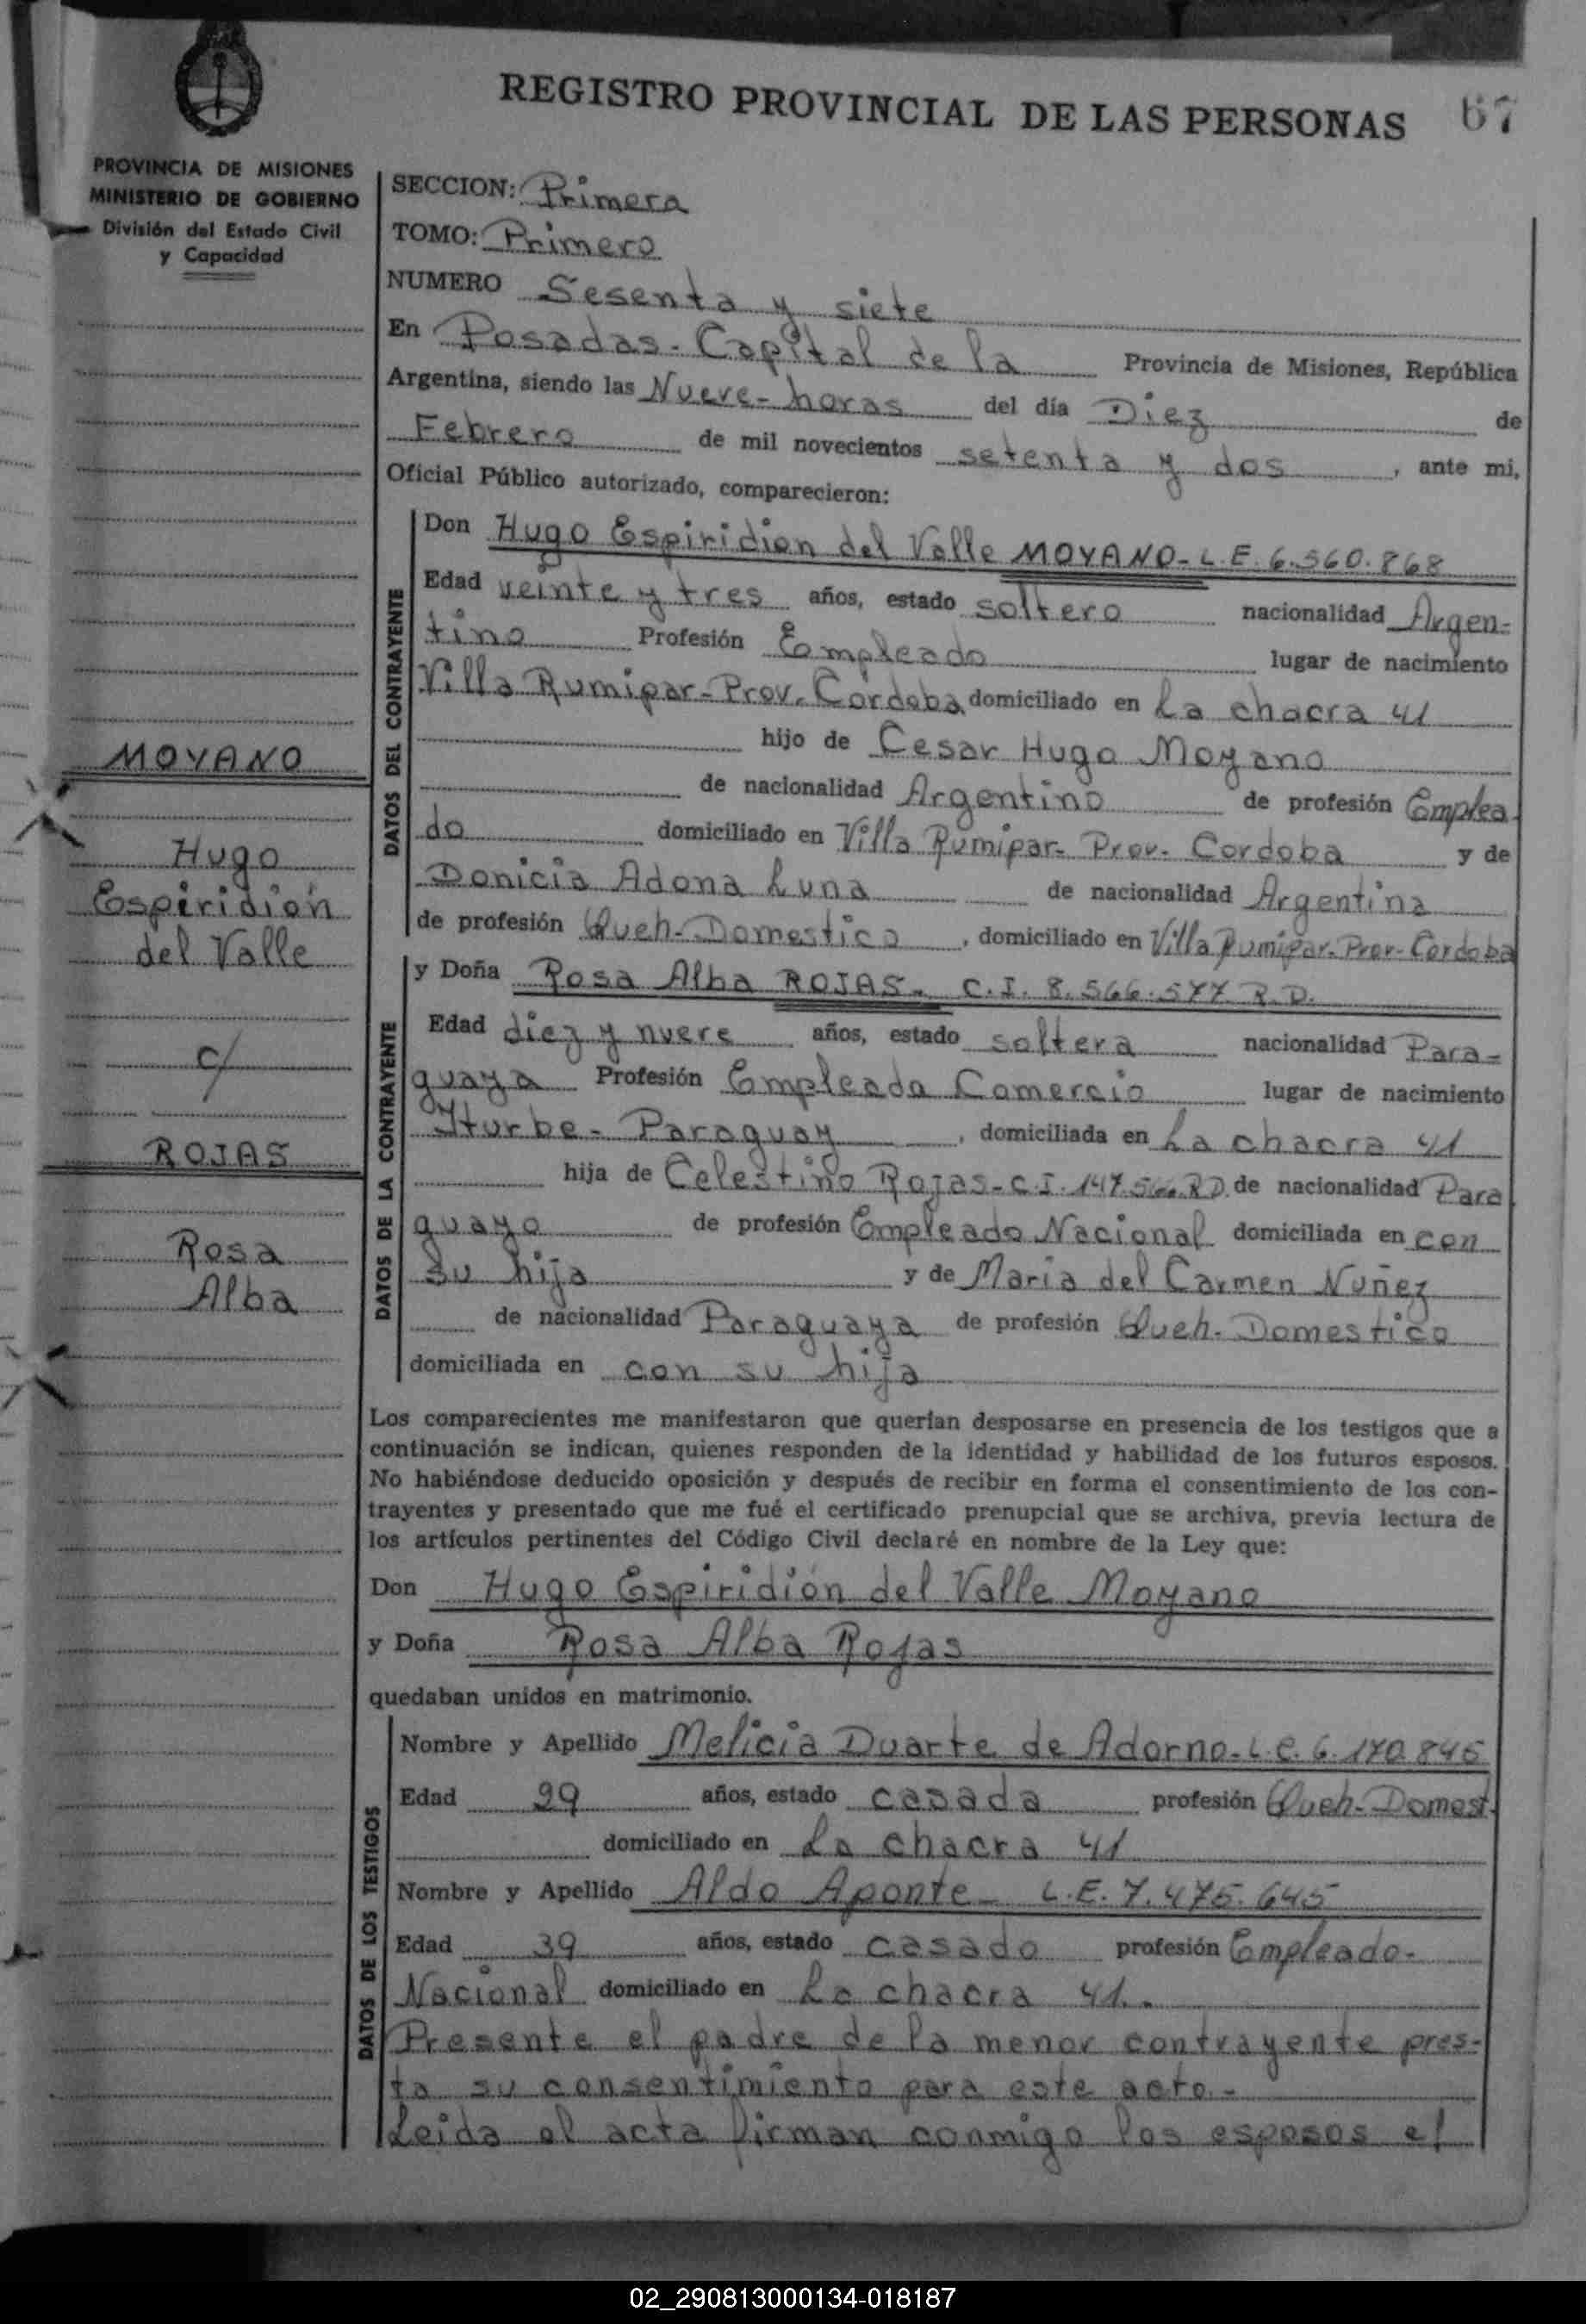 REGISTRO PROVINCIAL DE LAS PERSONAS 67
PROVINCIA DE MISIONES
MINISTERIO DE GOBIERNO
División del Estado Civil
y Capacidad
SECCION: Primera
TOMO: Primero
NUMERO Sesenta y siete
En Posadas - Capital de la Provincia de Misiones, República
Argentina, siendo las Nueve - horas del día Diez de
Febrero de mil novecientos setenta y dos, ante mi,
Oficial Público autorizado, comparecieron:
DATOS DEL CONTRAYENTE
Don Hugo Espiridion del Valle MOYANO - L.E. 6.560.868
Edad veinte y tres años, estado soltero nacionalidad Argen-
tino Profesión Empleado lugar de nacimiento
Villa Rumipar - Prov. Córdoba domiciliado en La chacra 41
hijo de Cesar Hugo Moyano
de nacionalidad Argentino de profesión Emplea
do domiciliado en Villa Rumipar - Prov. Cordoba y de
Donicia Adona Luna de nacionalidad Argentina
de profesión Queh. Domestico, domiciliado en Villa Rumipar - Prov - Cordoba
DATOS DE LA CONTRAYENTE
y Doña Rosa Alba ROJAS - C.I. 8.566.577 R.D.
Edad diez y nueve años, estado soltera nacionalidad Para-
guaya Profesión Empleada Comercio lugar de nacimiento
Yturbe - Paraguay, domiciliada en La chacra 41
hija de Celestino Rojas - C.I. 147.566 R.D. de nacionalidad Para
guayo de profesión Empleado Nacional domiciliada en con
su hija y de Maria del Carmen Nuñez
de nacionalidad Paraguaya de profesión Queh. Domestico
domiciliada en con su hija
Los comparecientes me manifestaron que querían desposarse en presencia de los testigos que a
continuación se indican, quienes responden de la identidad y habilidad de los futuros esposos.
No habiéndose deducido oposición y después de recibir en forma el consentimiento de los con-
trayentes y presentado que me fué el certificado prenupcial que se archiva, previa lectura de
los artículos pertinentes del Código Civil declaré en nombre de la Ley que:
Don Hugo Espiridión del Valle Moyano
y Doña Rosa Alba Rojas
quedaban unidos en matrimonio.
DATOS DE LOS TESTIGOS
Nombre y Apellido Melicia Duarte de Adorno - L.C. 6.170.845
Edad 29 años, estado casada profesión Queh - Domest.
domiciliado en La chacra 41
Nombre y Apellido Aldo Aponte - L.E. 7.475.645
Edad 39 años, estado casado profesión Empleado -
Nacional domiciliado en La chacra 41.
Presente el padre de la menor contrayente pres-
ta su consentimiento para este acto. -
Leida el acta firman conmigo los esposos el
MOYANO
Hugo
Espiridión
del Valle
c/
ROJAS
Rosa
Alba
02_290813000134-018187